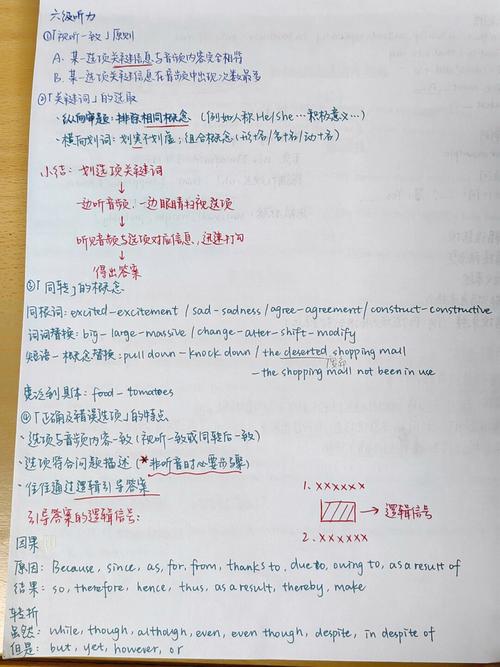 六级听力
①「视听一致」原则
A. 某一选项关键信息与音频内容完全相符
B. 某一选项关键信息在音频中出现次数最多
②「关键词」的选取
·纵向审题:排除相同概念 (例如人称He/She…积极意义…)
·横向划词:划实不划虚;组合概念(形+名/名+名/动+名)
小结:划选项关键词
↓
一边听音频,一边眼睛扫视选项
↓
听见音频与选项对应信息,迅速打勾
↓
得出答案
③「同转」的概念
同根词:excited-excitement / sad-sadness / agree-agreement / construct-constructive
词词替换:big-large-massive / change-alter-shift-modify
短语-概念替换:pull down-knock down / the deserted shopping mall
- the shopping mall not been in use
宽泛到具体:food-tomatoes
④「正确及错误选项」的特点
·选项与音频内容一致(视听一致或同转后一致)
·选项符合问题描述 (*非听音时必要步骤)
·往往通过逻辑引导答案
1. xxxxxx
引导答案的逻辑信号:
→ 逻辑信号
2. xxxxxx
因果
原因:Because, since, as, for, from, thanks to, due to, owing to, as a result of
结果:so, therefore, hence, thus, as a result, thereby, make
转折
虽然:while, though, although, even, even though, despite, in despite of
但是:but, yet, however, or